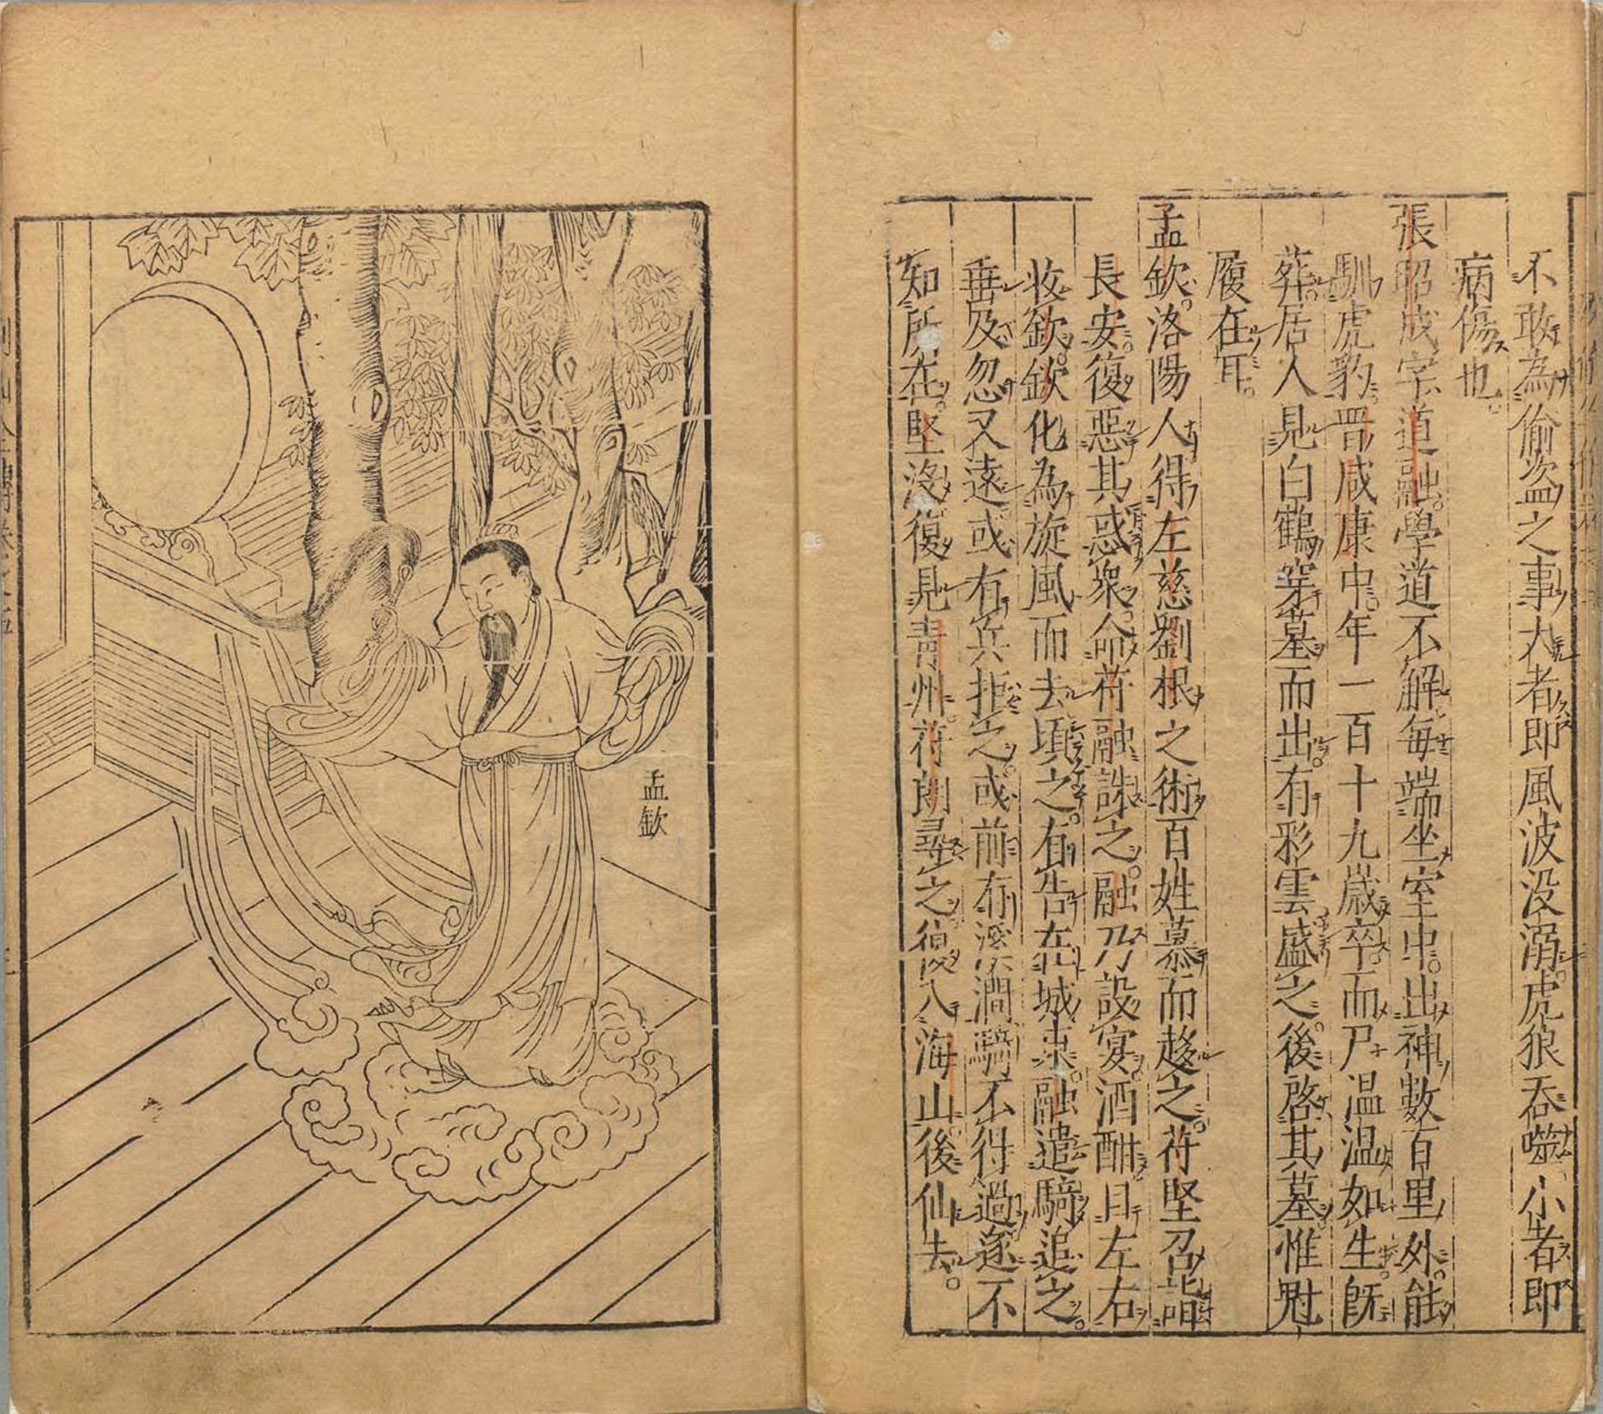 不敢為偷盜之事大者即風波没溺虎狼吞噬小者即
病傷也
張昭成字道融學道不解每端坐室中出神數百里外能
馴虎豹晋咸康中年一百十九歲卒而尸温温如生既
葬居人見白鶴穿墓而出有彩雲盛之後啓其墓惟冠
履在耳
孟欽洛陽人得左慈劉根之術百姓慕而趍之苻堅召詣
長安復惡其惑衆命苻融誅之融乃設宴酒酣目左右
收欽欽化為旋風而去頃之有告在城東融遣騎追之
垂及忽又遠或有兵拒之或前有溪澗騎不得過遂不
知所在堅没復見青州苻朗尋之復入海山後仙去
孟欽